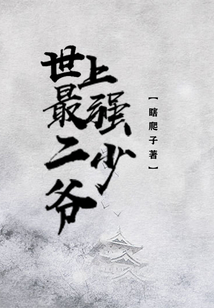 世上
最强
二少
爷
【瞎爬子著】